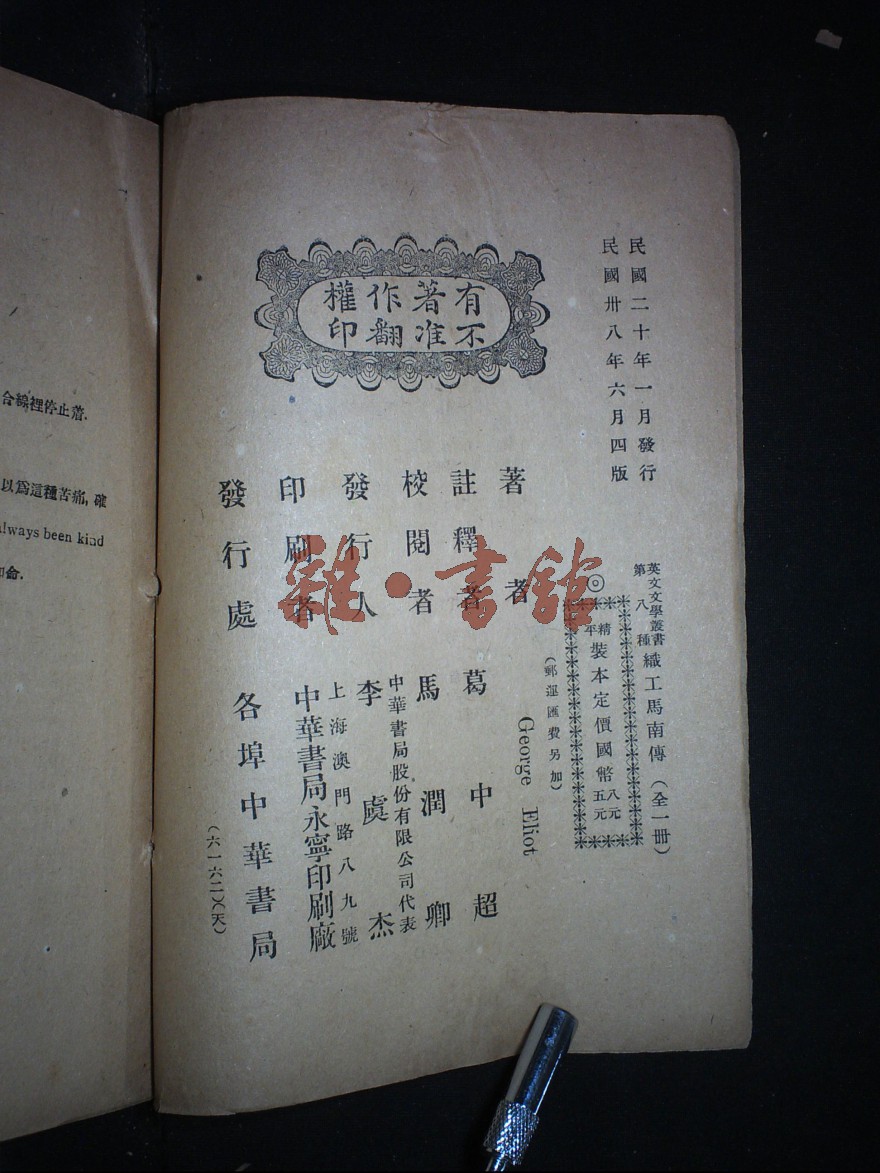 合線裡停止着.
以爲這種苦痛,確
always been kind
如命.
民國二十年一月發行
民國卅八年六月四版
英文文學叢書
第八種
織工馬南傳（全一冊）
◎
精平裝本定價國幣八元五元
（郵運匯費另加）
有著作權
不准翻印
著者 George Eliot
註釋者 葛中超
校閱者 馬潤卿
發行人 李虞杰
中華書局股份有限公司代表
印刷者 中華書局永寧印刷廠
上海澳門路八九號
發行處 各埠中華書局
（六一六二）（天）
雜·書館